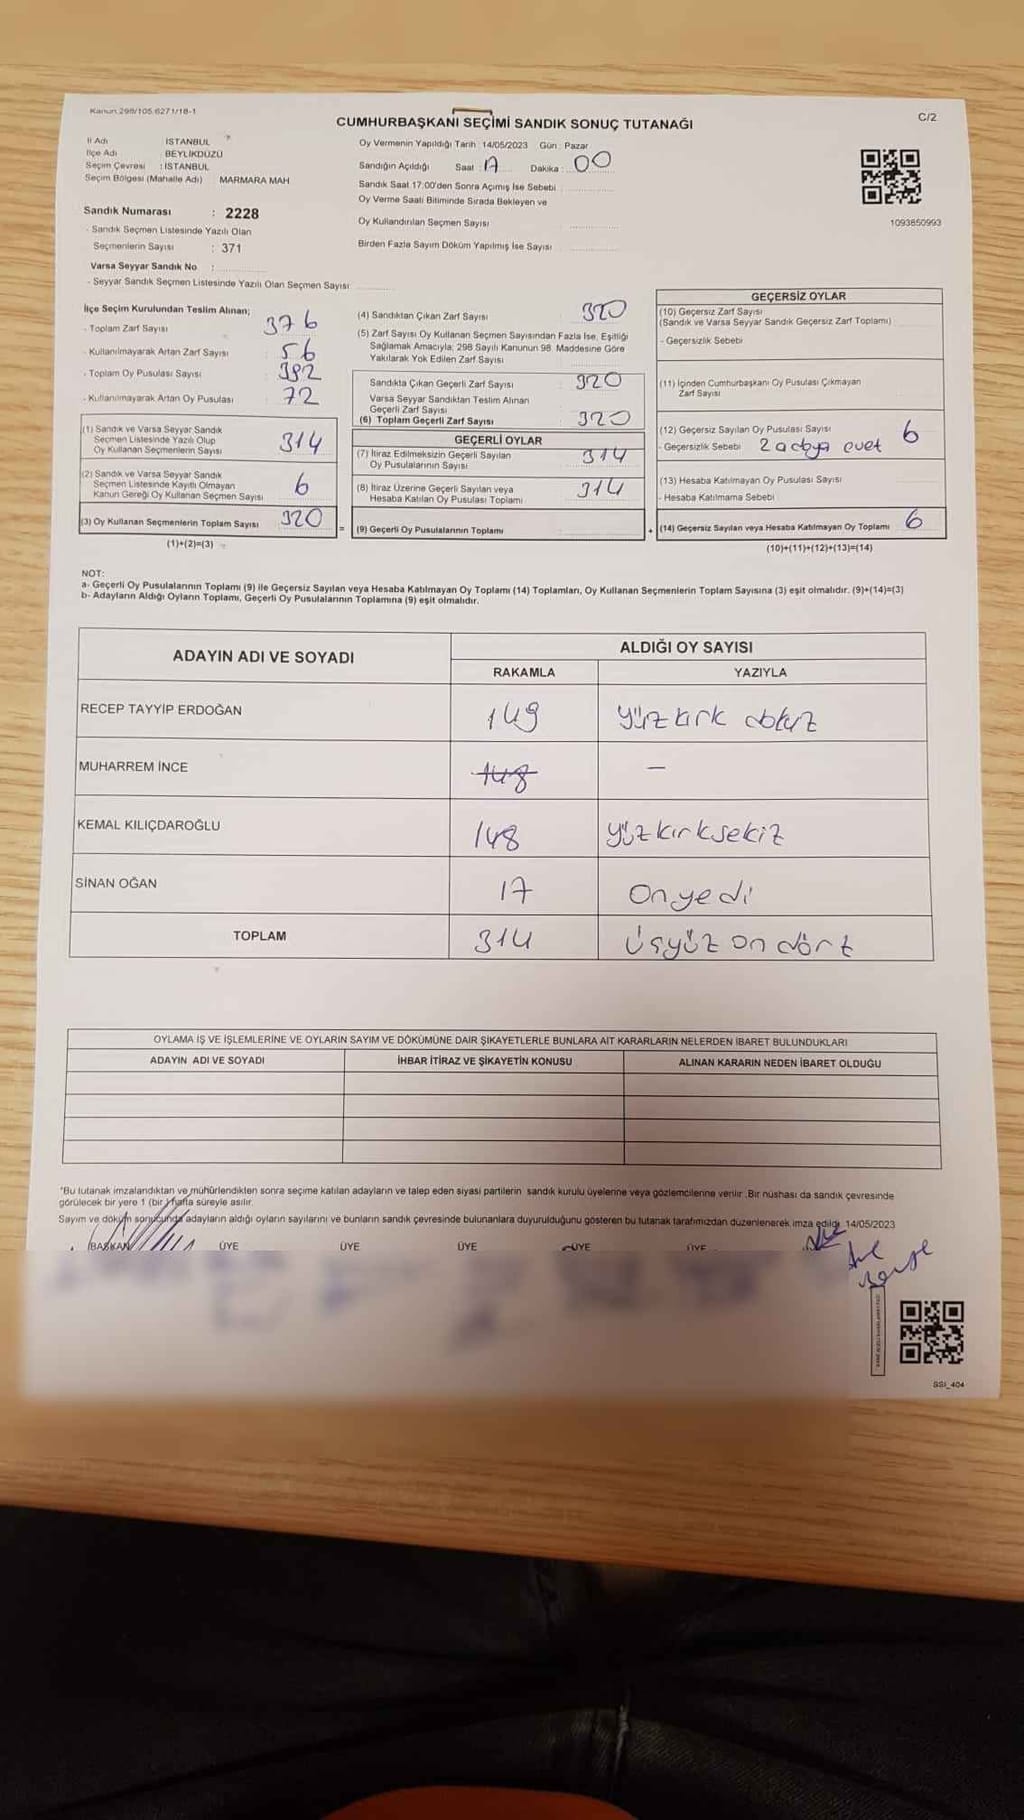 Kanun 298/105.6271/18-1
CUMHURBAŞKANI SEÇİMİ SANDIK SONUÇ TUTANAĞI
C/2
İl Adı : İSTANBUL
İlçe Adı : BEYLİKDÜZÜ
Seçim Çevresi : İSTANBUL
Seçim Bölgesi (Mahalle Adı) MARMARA MAH
Sandık Numarası : 2228
- Sandık Seçmen Listesinde Yazılı Olan
Seçmenlerin Sayısı : 371
Varsa Seyyar Sandık No :
- Seyyar Sandık Seçmen Listesinde Yazılı Olan Seçmen Sayısı
Oy Vermenin Yapıldığı Tarih : 14/05/2023 Gün : Pazar
Sandığın Açıldığı Saat : 17 Dakika : 00
Sandık Saat 17:00'den Sonra Açımış İse Sebebi
Oy Verme Saati Bitiminde Sırada Bekleyen ve
Oy Kullandırılan Seçmen Sayısı
Birden Fazla Sayım Döküm Yapılmış İse Sayısı
1093850993
İlçe Seçim Kurulundan Teslim Alınan;
- Toplam Zarf Sayısı 376
- Kullanılmayarak Artan Zarf Sayısı : 56
- Toplam Oy Pusulası Sayısı : 392
- Kullanılmayarak Artan Oy Pusulası : 72
(1) Sandık ve Varsa Seyyar Sandık
Seçmen Listesinde Yazılı Olup
Oy Kullanan Seçmenlerin Sayısı 314
(2) Sandık ve Varsa Seyyar Sandık
Seçmen Listesinde Kayıtlı Olmayan
Kanun Gereği Oy Kullanan Seçmen Sayısı 6
(3) Oy Kullanan Seçmenlerin Toplam Sayısı 320
(1)+(2)=(3)
(4) Sandıktan Çıkan Zarf Sayısı 320
(5) Zarf Sayısı Oy Kullanan Seçmen Sayısından Fazla İse, Eşitliği
Sağlamak Amacıyla; 298 Sayılı Kanunun 98. Maddesine Göre
Yakılarak Yok Edilen Zarf Sayısı
Sandıkta Çıkan Geçerli Zarf Sayısı 320
Varsa Seyyar Sandıktan Teslim Alınan
Geçerli Zarf Sayısı
(6) Toplam Geçerli Zarf Sayısı 320
GEÇERLİ OYLAR
(7) İtiraz Edilmeksizin Geçerli Sayılan
Oy Pusulalarının Sayısı 314
(8) İtiraz Üzerine Geçerli Sayılan veya
Hesaba Katılan Oy Pusulası Toplamı 314
= (9) Geçerli Oy Pusulalarının Toplamı +
GEÇERSİZ OYLAR
(10) Geçersiz Zarf Sayısı
(Sandık ve Varsa Seyyar Sandık Geçersiz Zarf Toplamı)
- Geçersizlik Sebebi
(11) İçinden Cumhurbaşkanı Oy Pusulası Çıkmayan
Zarf Sayısı
(12) Geçersiz Sayılan Oy Pusulası Sayısı 6
- Geçersizlik Sebebi 2 adaya evet
(13) Hesaba Katılmayan Oy Pusulası Sayısı
- Hesaba Katılmama Sebebi
(14) Geçersiz Sayılan veya Hesaba Katılmayan Oy Toplamı 6
(10)+(11)+(12)+(13)=(14)
NOT:
a- Geçerli Oy Pusulalarının Toplamı (9) ile Geçersiz Sayılan veya Hesaba Katılmayan Oy Toplamı (14) Toplamları, Oy Kullanan Seçmenlerin Toplam Sayısına (3) eşit olmalıdır. (9)+(14)=(3)
b- Adayların Aldığı Oyların Toplamı, Geçerli Oy Pusulalarının Toplamına (9) eşit olmalıdır.
ADAYIN ADI VE SOYADI
ALDIĞI OY SAYISI
RAKAMLA YAZIYLA
RECEP TAYYİP ERDOĞAN 149 yüz kırk dokuz
MUHARREM İNCE 148 —
KEMAL KILIÇDAROĞLU 148 yüzkırksekiz
SİNAN OĞAN 17 Onyedi
TOPLAM 314 üçyüz on dört
OYLAMA İŞ VE İŞLEMLERİNE VE OYLARIN SAYIM VE DÖKÜMÜNE DAİR ŞİKAYETLERLE BUNLARA AİT KARARLARIN NELERDEN İBARET BULUNDUKLARI
ADAYIN ADI VE SOYADI İHBAR İTİRAZ VE ŞİKAYETİN KONUSU ALINAN KARARIN NEDEN İBARET OLDUĞU
*Bu tutanak imzalandıktan ve mühürlendikten sonra seçime katılan adayların ve talep eden siyasi partilerin sandık kurulu üyelerine veya gözlemcilerine verilir. Bir nüshası da sandık çevresinde
görülecek bir yere 1 (bir) hafta süreyle asılır.
Sayım ve döküm sonucunda adayların aldığı oyların sayılarını ve bunların sandık çevresinde bulunanlara duyurulduğunu gösteren bu tutanak tarafımızdan düzenlenerek imza edildi. 14/05/2023
BAŞKAN ÜYE ÜYE ÜYE ÜYE ÜYE
SSI_404